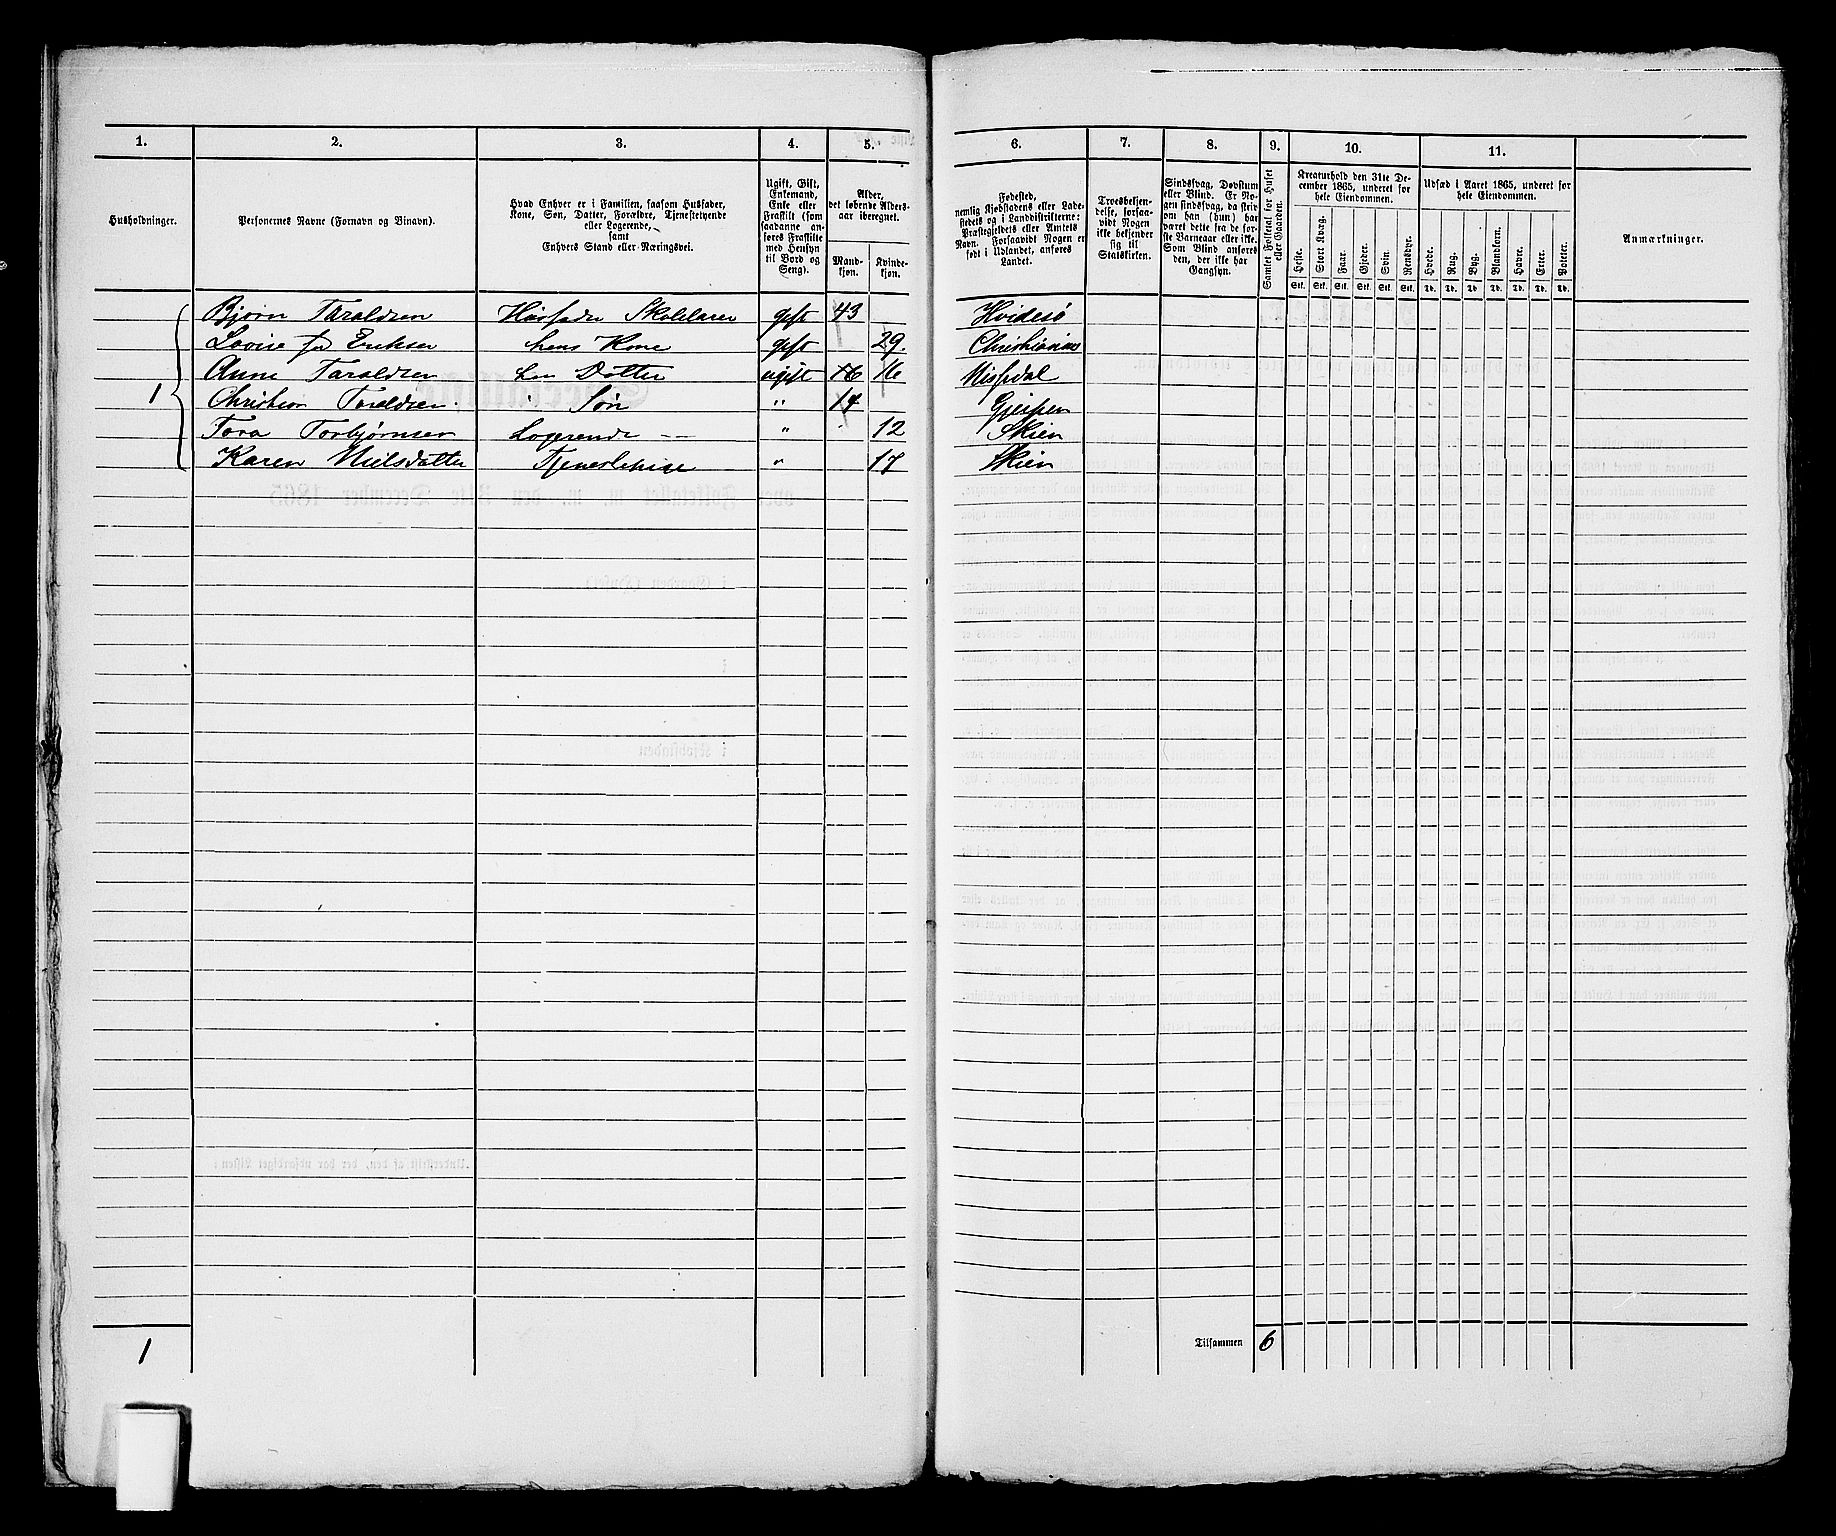 1. 2. 3. 4. 5. 6. 7. 8. 9. 10. 11.
Husholdninger.
Personernes Navne (Fornavn og Binavn).
Hvad Enhver er i Familien, saasom Husfader,
Kone, Søn, Datter, Forældre, Tjenestetyende
eller Logerende,
samt
Enhvers Stand eller Næringsvei.
Ugift, Gift,
Enkemand,
Enke eller
Fraskilt (som
saadanne an-
føres Fraskilte
med Hensyn
til Bord og
Seng).
Alder,
det løbende Alders-
aar iberegnet.
Mand-
kjøn.
Kvinde-
kjøn.
Fødested,
nemlig Kjøbstadens eller Lade-
stedets og i Landdistrikterne:
Præstegjeldets eller Amtets
Navn. Forsaavidt Nogen er
født i Udlandet, anføres
Landet.
Troesbekjen-
delse, forsaa-
vidt Nogen
ikke bekjender
sig til
Statskirken.
Sindssvag, Døvstum
eller Blind. Er No-
gen sindssvag, da skriv
om han (hun) har
været dette fra de før-
ste Barneaar eller ikke.
Som Blind anføres
den, der ikke har
Gangsyn.
Samlet Folketal for Huset
eller Gaarden.
Kreaturhold den 31te De-
cember 1865, underet for
hele Eiendommen.
Heste. Stort Kvæg. Faar. Gjeder. Svin. Rensdyr.
Stk. Stk. Stk. Stk. Stk. Stk.
Udsæd i Aaret 1865, underet for
hele Eiendommen.
Hvede. Rug. Byg. Blandkorn. Havre. Erter. Poteter.
Td. Td. Td. Td. Td. Td. Td.
Anmærkninger.
Bjørn Taraldsen Husfader Skolelærer gift 43 Hvidesø
Lovise Eriksen hans Kone gift 29. Christiania
1 Anne Taraldsen Datter ugift 16 16 Nissedal
Christian Taraldsen " Søn " 14 Gjerpen
Tora Torbjørnsen Logerende " 12 Skien
Karen Nielsdatter Tjenestepige " 17 Skien
1 Tilsammen 6